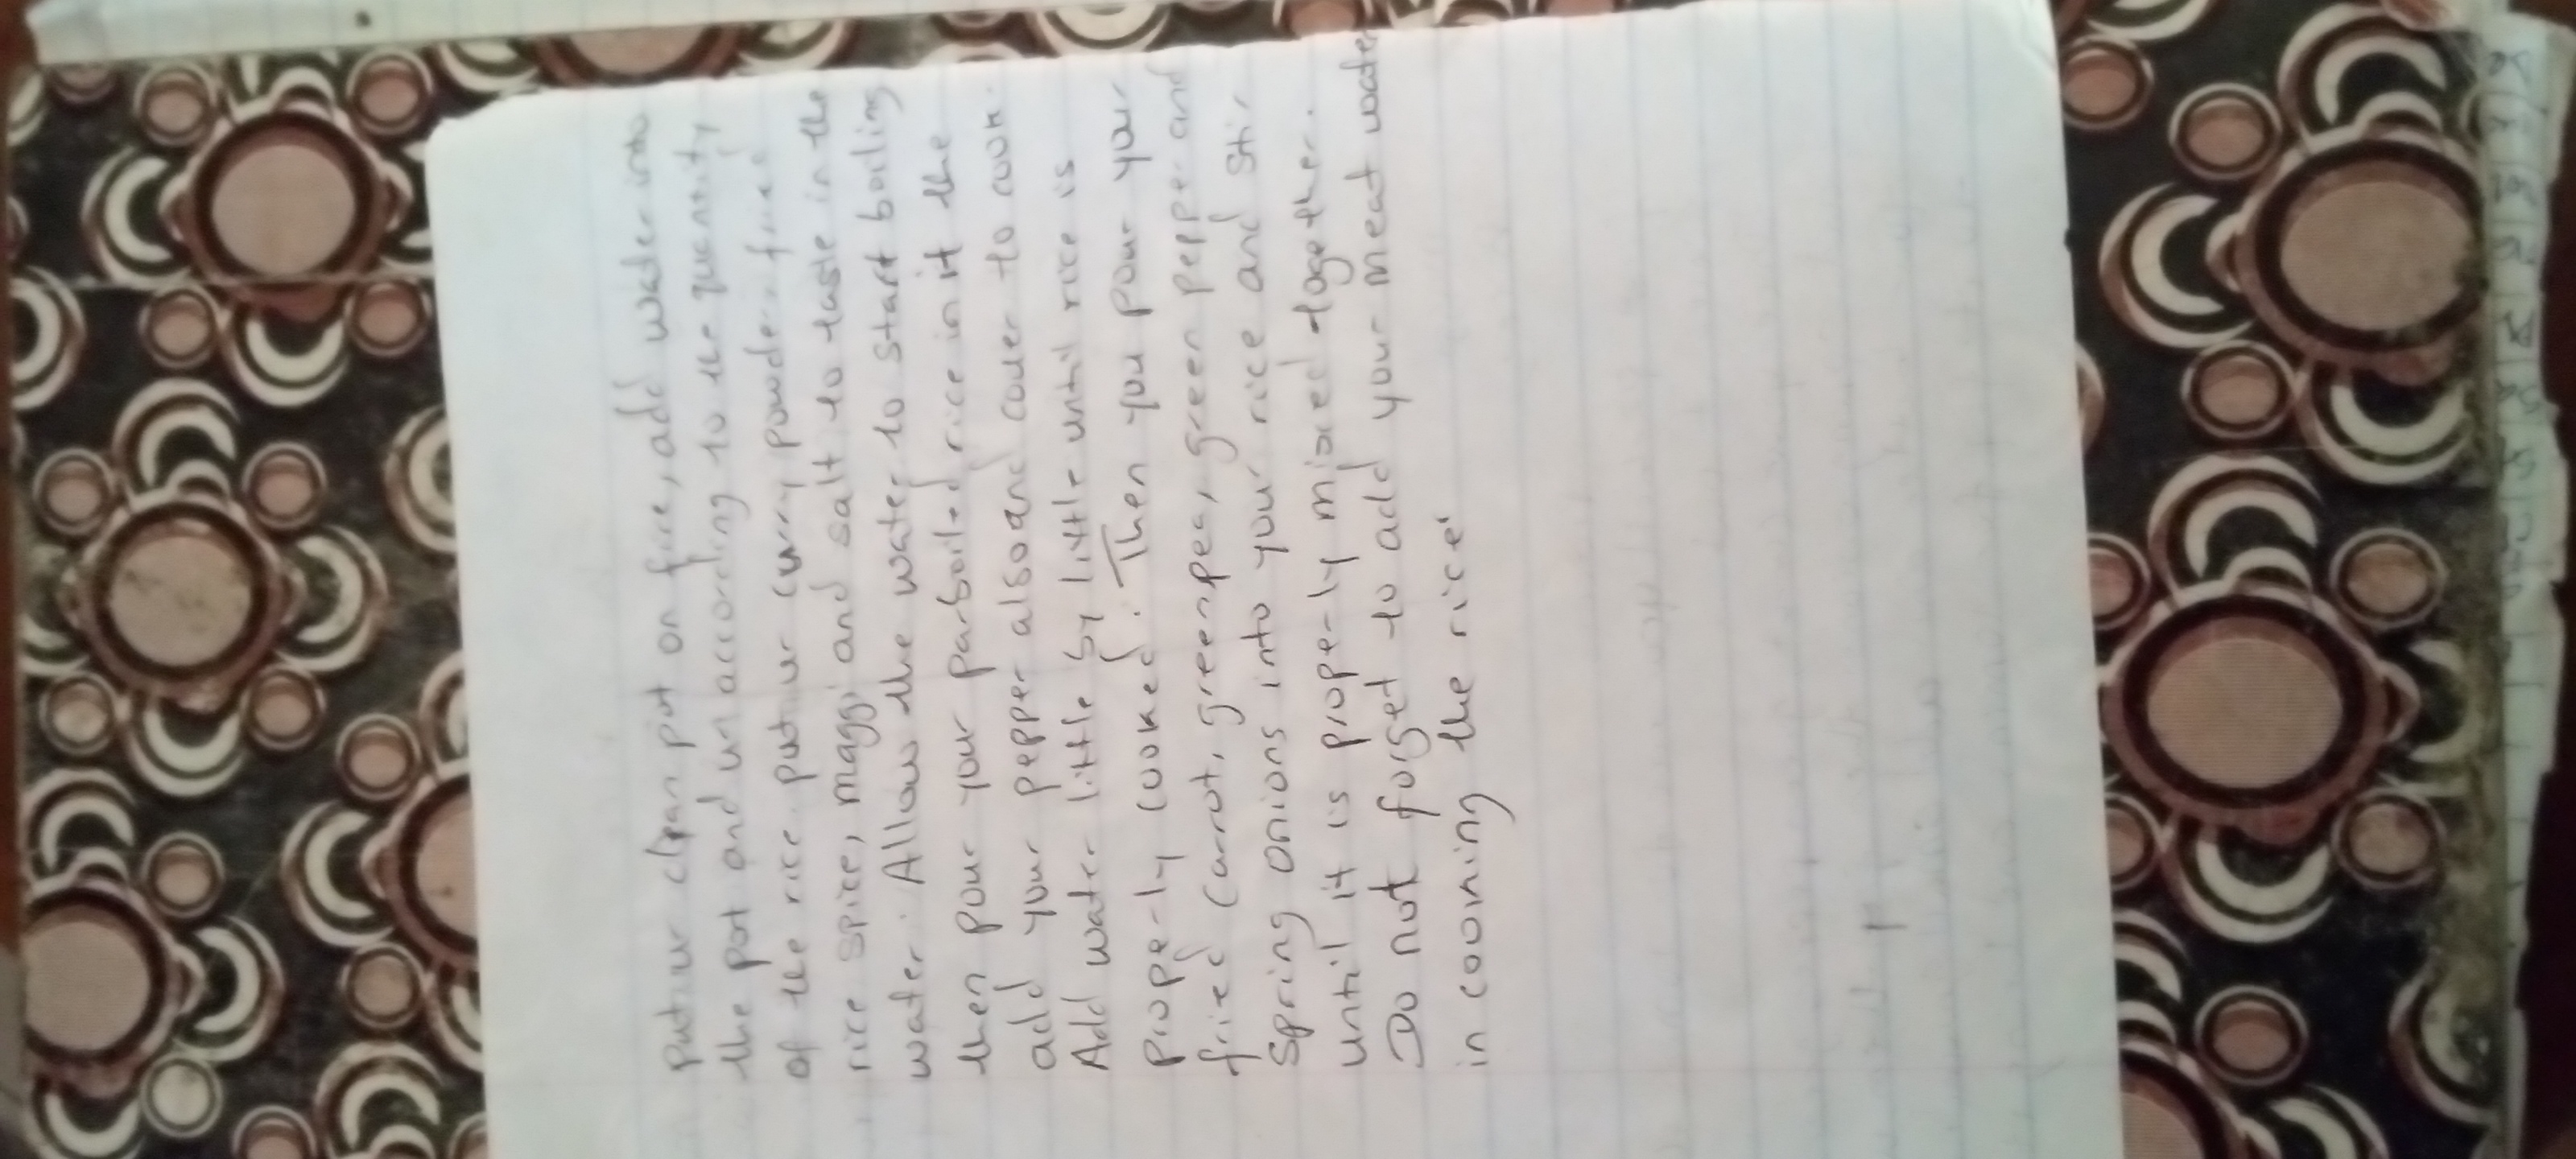 put ur clean pot on fire, add water into
the pot and ur according to the quantity
of the rice. put ur curry powder, fried
rice spice, maggi and salt to taste in the
water. Allow the water to start boiling
then pour your parboiled rice in it the
add your pepper also and cover to cook.
Add water little by little until rice is
properly cooked. Then you pour your
fried carrot, greenpea, green pepper and
Spring onions into your rice and stir
until it is properly mixed together.
Do not forget to add your meat water
in cooking the rice'